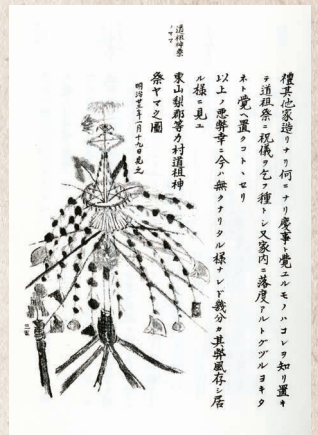 禮其他家造リナリ何ニナリ慶事ト覺エルモノハコレヲ知リ置キ
テ道祖祭ニ祝儀ヲ乞フ種トシ又家内ニ落度アルトグヅルヨキタ
ネト覺ヘ置クコトヽセリ
以上ノ悪弊幸ニ今ハ無クナリタル様ナレド幾分カ其弊風存シ居
ル様ニ見エ
東山梨郡等々力村道祖神
祭ヤマ之圖
明治廿三年一月十九日見之
道祖神祭
ノヤマ